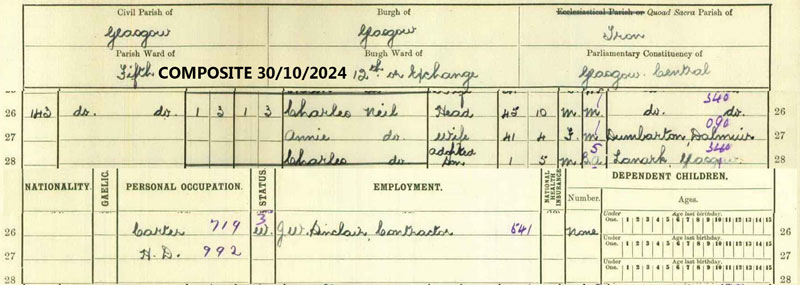 Civil Parish of Burgh of Ecclesiastical Parish or Quoad Sacra Parish of
Glasgow Glasgow Tron
Parish Ward of Burgh Ward of Parliamentary Constituency of
Fifth COMPOSITE 30/10/2024 12th or Exchange Glasgow Central
340
26 143 do. do. 1 3 1 3 Charles Neil Head 45 10 M. M. do. do. 26
090
27 Annie do. Wife 41 4 F. M. Dumbarton, Dalmuir 27
adopted 5 340
28 Charles do. Son 1 5 M. Lanark, Glasgow 28
NATIONALITY. GAELIC. PERSONAL OCCUPATION. STATUS. EMPLOYMENT. NATIONAL HEALTH INSURANCE DEPENDENT CHILDREN.
Number. Ages.
Under One. Age last birthday.
1 2 3 4 5 6 7 8 9 10 11 12 13 14 15
26 Carter 719 3 W. J.W. Sinclair, Contractor 541 none 26
Under One. Age last birthday.
1 2 3 4 5 6 7 8 9 10 11 12 13 14 15
27 H.D. 992 27
Under One. Age last birthday.
1 2 3 4 5 6 7 8 9 10 11 12 13 14 15
28 28